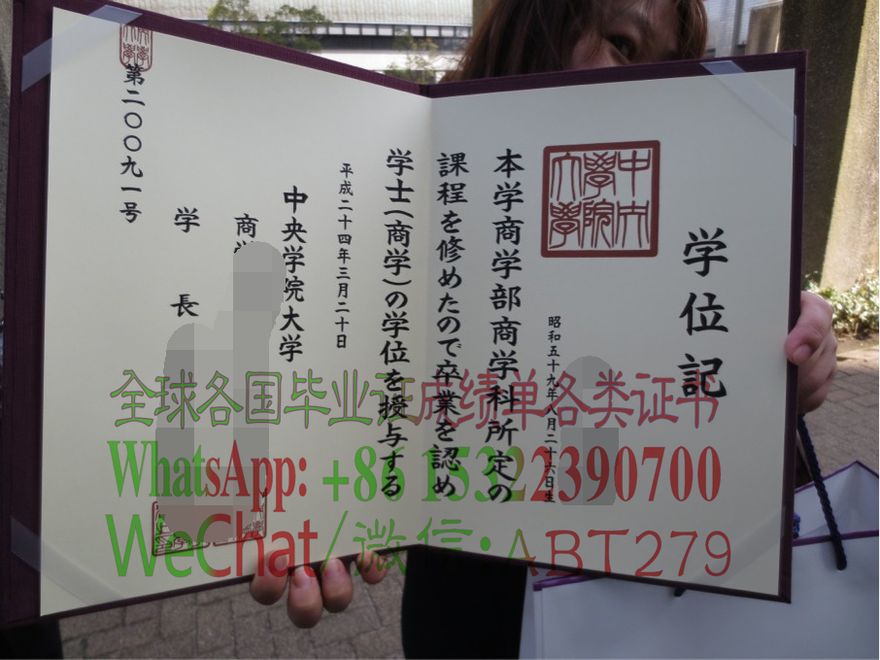 学位記
中央
学院
大学
昭和五十九年八月二十六日生
本学商学部商学科所定の
課程を修めたので卒業を認め
学士(商学)の学位を授与する
平成二十四年三月二十日
中央学院大学
商学
学長
第二〇〇九一号
全球各国毕业证成绩单各类证书
WhatsApp: +86 15322390700
WeChat/微信:ABT279